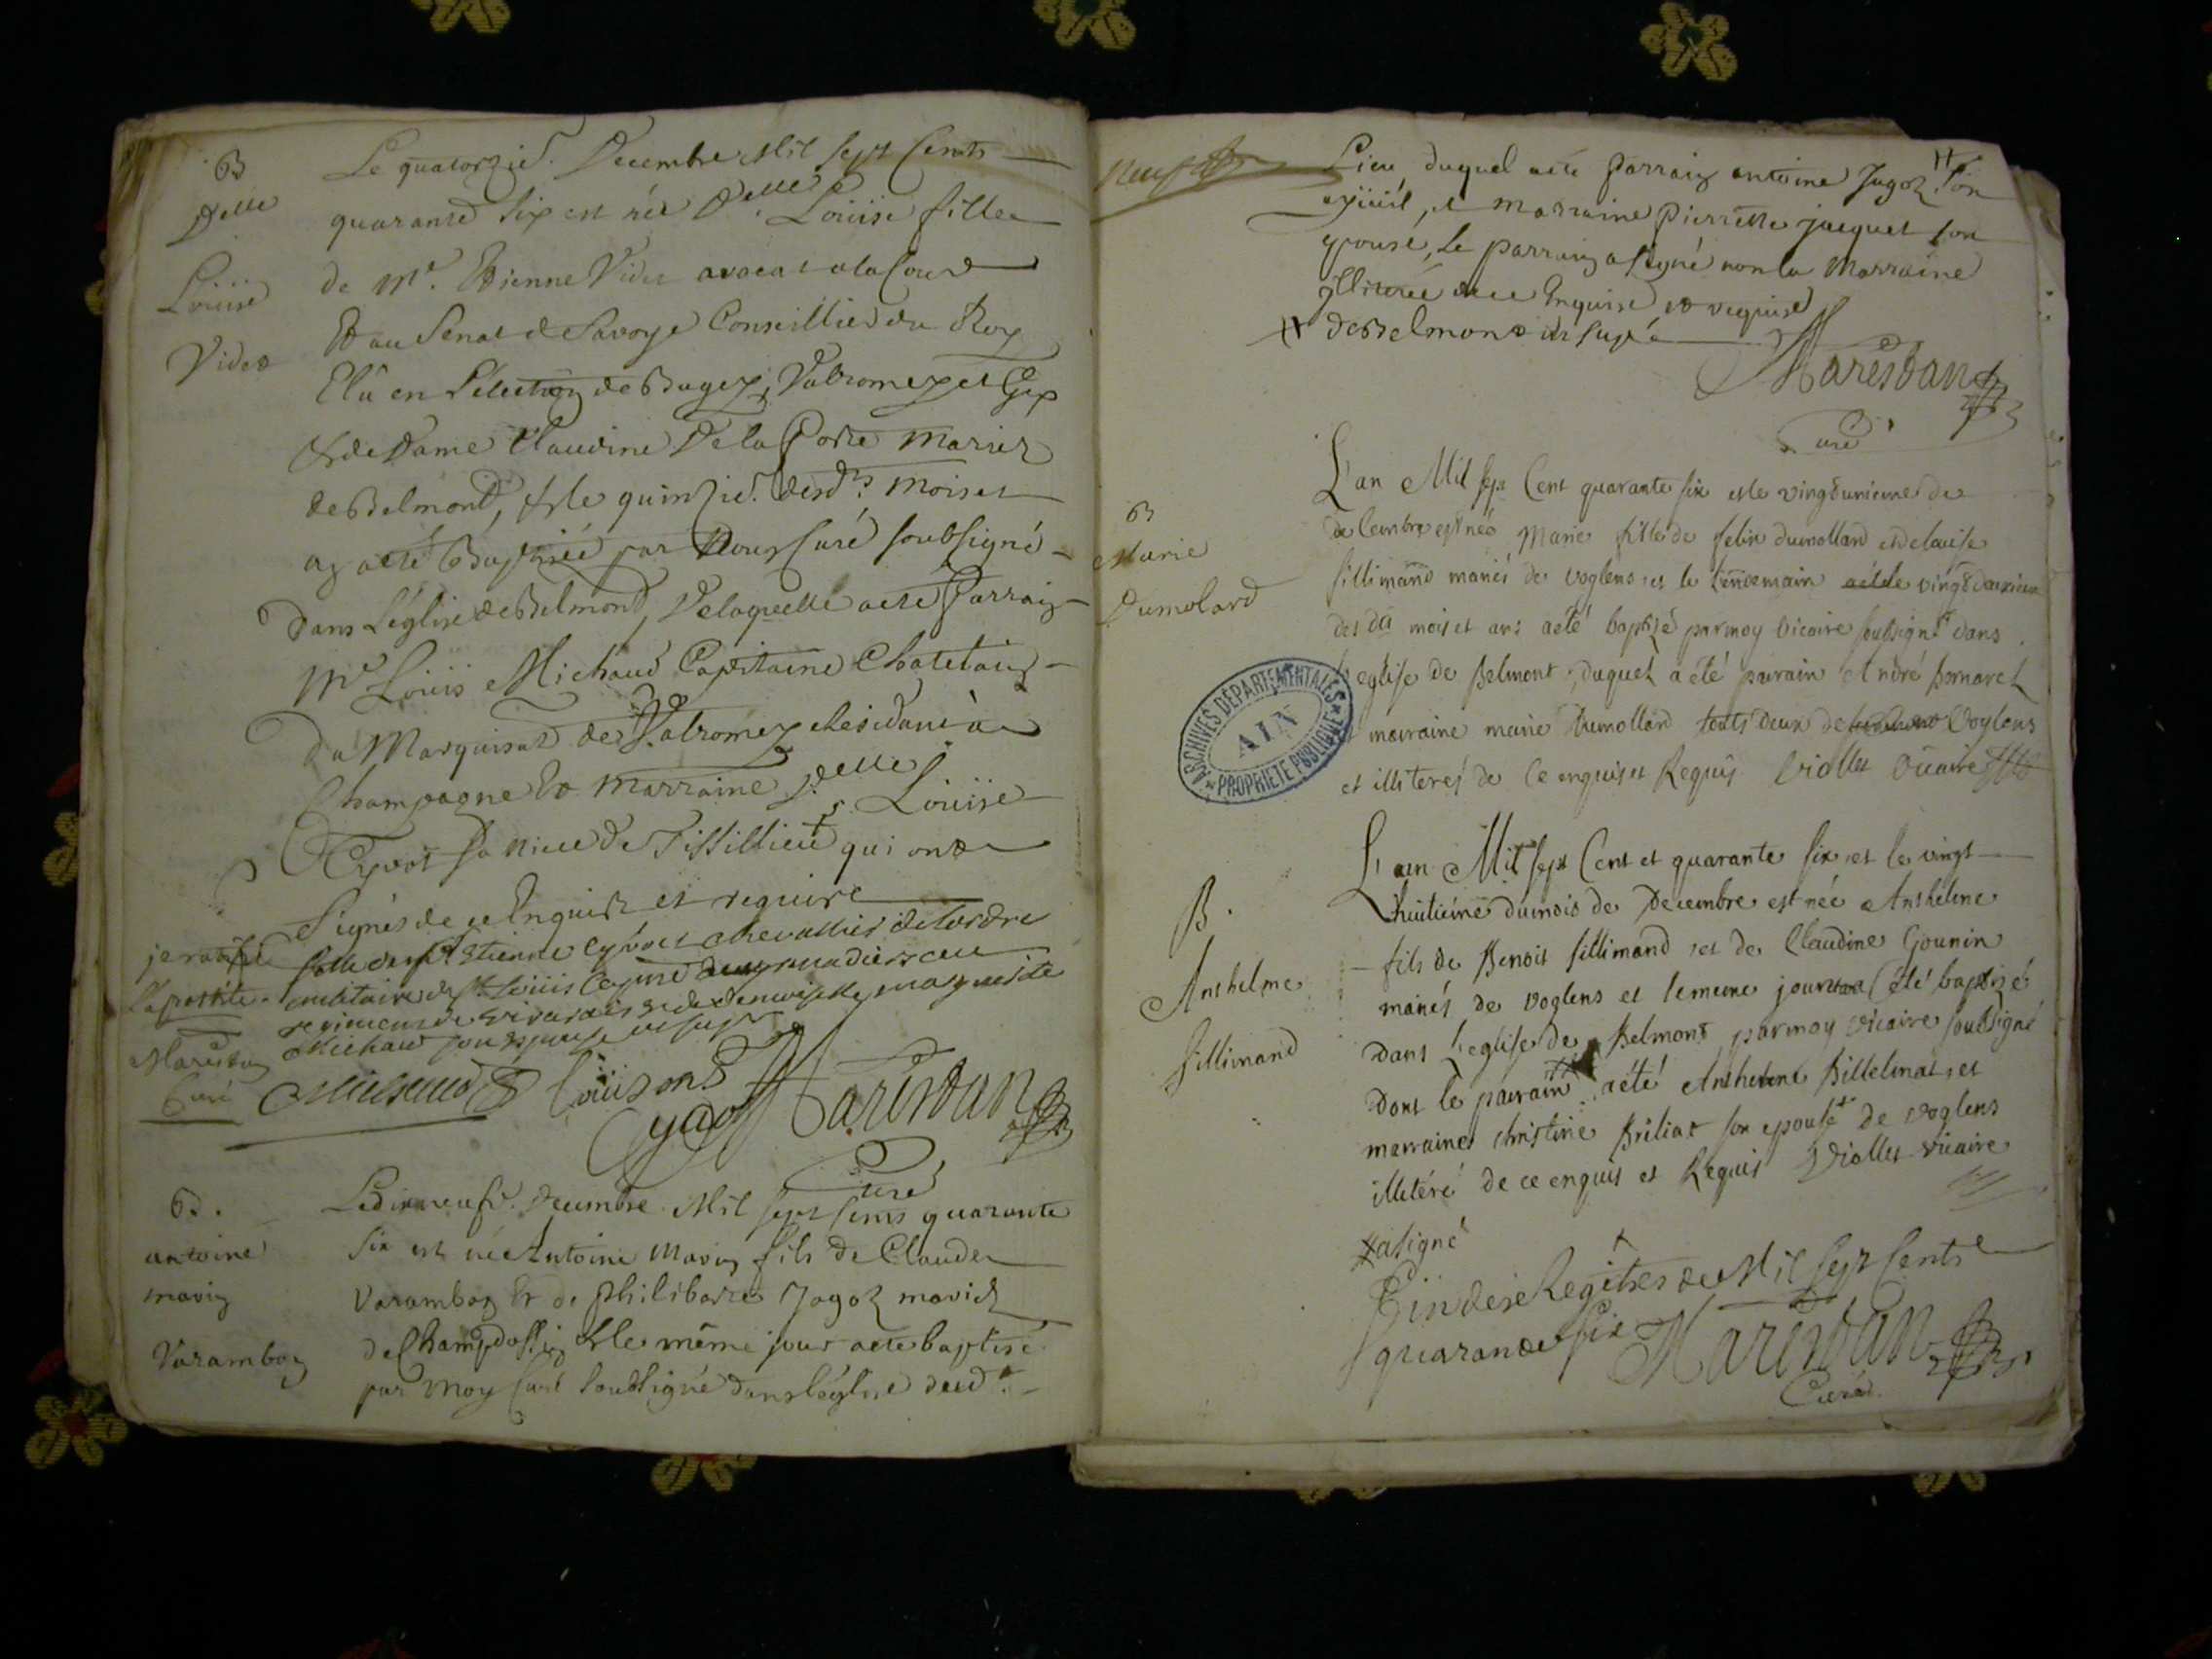 B
Delle
Loüise
Videt
Le quatorzie. Decembre Mil sept Cents
quarante six est née Delle. Loüise fille
de Mr. Etienne Videt avocat a la Cour
Et au Senat de Savoye Conseillier du Roy
Elû en L'election de Bugey, Valromey et Gex
& de Dame Claudine De la Porte mariez
de Belmont, & le quinzie. desdts. mois et
an a eté Baptisée par Nous Curé soubsigné
dans L'église de Belmont, De laquelle a eté Parrain
Mr. Loüis Michaud Capitaine Chatelain
du Marquisat de Valromey Residant à
Champagne Et marraine Delle. Loüise
Cyvot sa niece de Fissillieu qui ont
Signés de ce Enquis et requis
fille de Sr. Etienne Cyvoct chevallier de lordre
militaire de St. Loüis Capne
regiment de vivarais et de demoiselle marguerite
Michaud son epouse
je ratifie
l'apostile
Marestan
Curé
Michaud
Loüison
Cyvot
Marestan
Curé
B.
antoine
marin
Varambon
Le dixneufe. decembre Mil sept Cents quarante
six est né Antoine Marin fils de Claude
Varambon Et de philiberte Jagot mariez
de Champdossin & le même jour a eté baptisé
par moy Curé soubsigné dans l'église dud.
Lieu, duquel a eté Parrain antoine Jugoz son
et marraine Pierrette jacquet son
epouse, Le parrain a signé non la Marraine
Illiterée de ce Enquise et requise
de Belmont
Marestan
Curé
B
Marie
Dumolard
L'an Mil sept Cent quarante six et le vingt unieme de
decembre est née Marie fille de felix dumollard et de louise
sillimand mariés de voglens et le lendemain vingt deuxieme
des dts mois et ans a eté baptizé par moy vicaire soubsigné dans
l'eglise de Belmont, duquel a été parrain André bornarel
marraine marie Dumollard touts deux de Voglens
et illiterés de ce enquis et Requis Viollet vicaire
ARCHIVES DÉPARTEMENTALES
AIN
PROPRIÉTÉ PUBLIQUE
B.
Anthelme
sillimand
L'an Mil sept Cent et quarante six et le vingt
huitieme du mois de Decembre est née Anthelme
fils de Benoit sillimand et de Claudine Gounin
mariés de voglens et le meme jour a été baptizé
dans l'eglise de Belmont par moy vicaire soubsigné
dont le parrain a été Anthelme Billiemat, et
marraine christine Briliat son epouse de voglens
illitéré de ce enquis et Requis Viollet vicaire
a signé
Fin des Regitres de Mil sept Cents
quarante six
Marestan
Curé